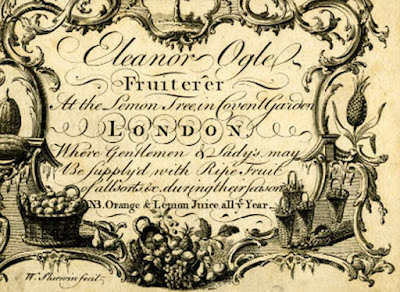 Eleanor Ogle
Fruiterer
At the Lemon Tree, in Covent Garden
LONDON,
Where Gentlemen & Lady's may
be Supply'd with Ripe Fruit
of all Sorts &c. during their Season
NB. Orange & Lemon Juice all yͤ Year.
W. Sherwin fecit.